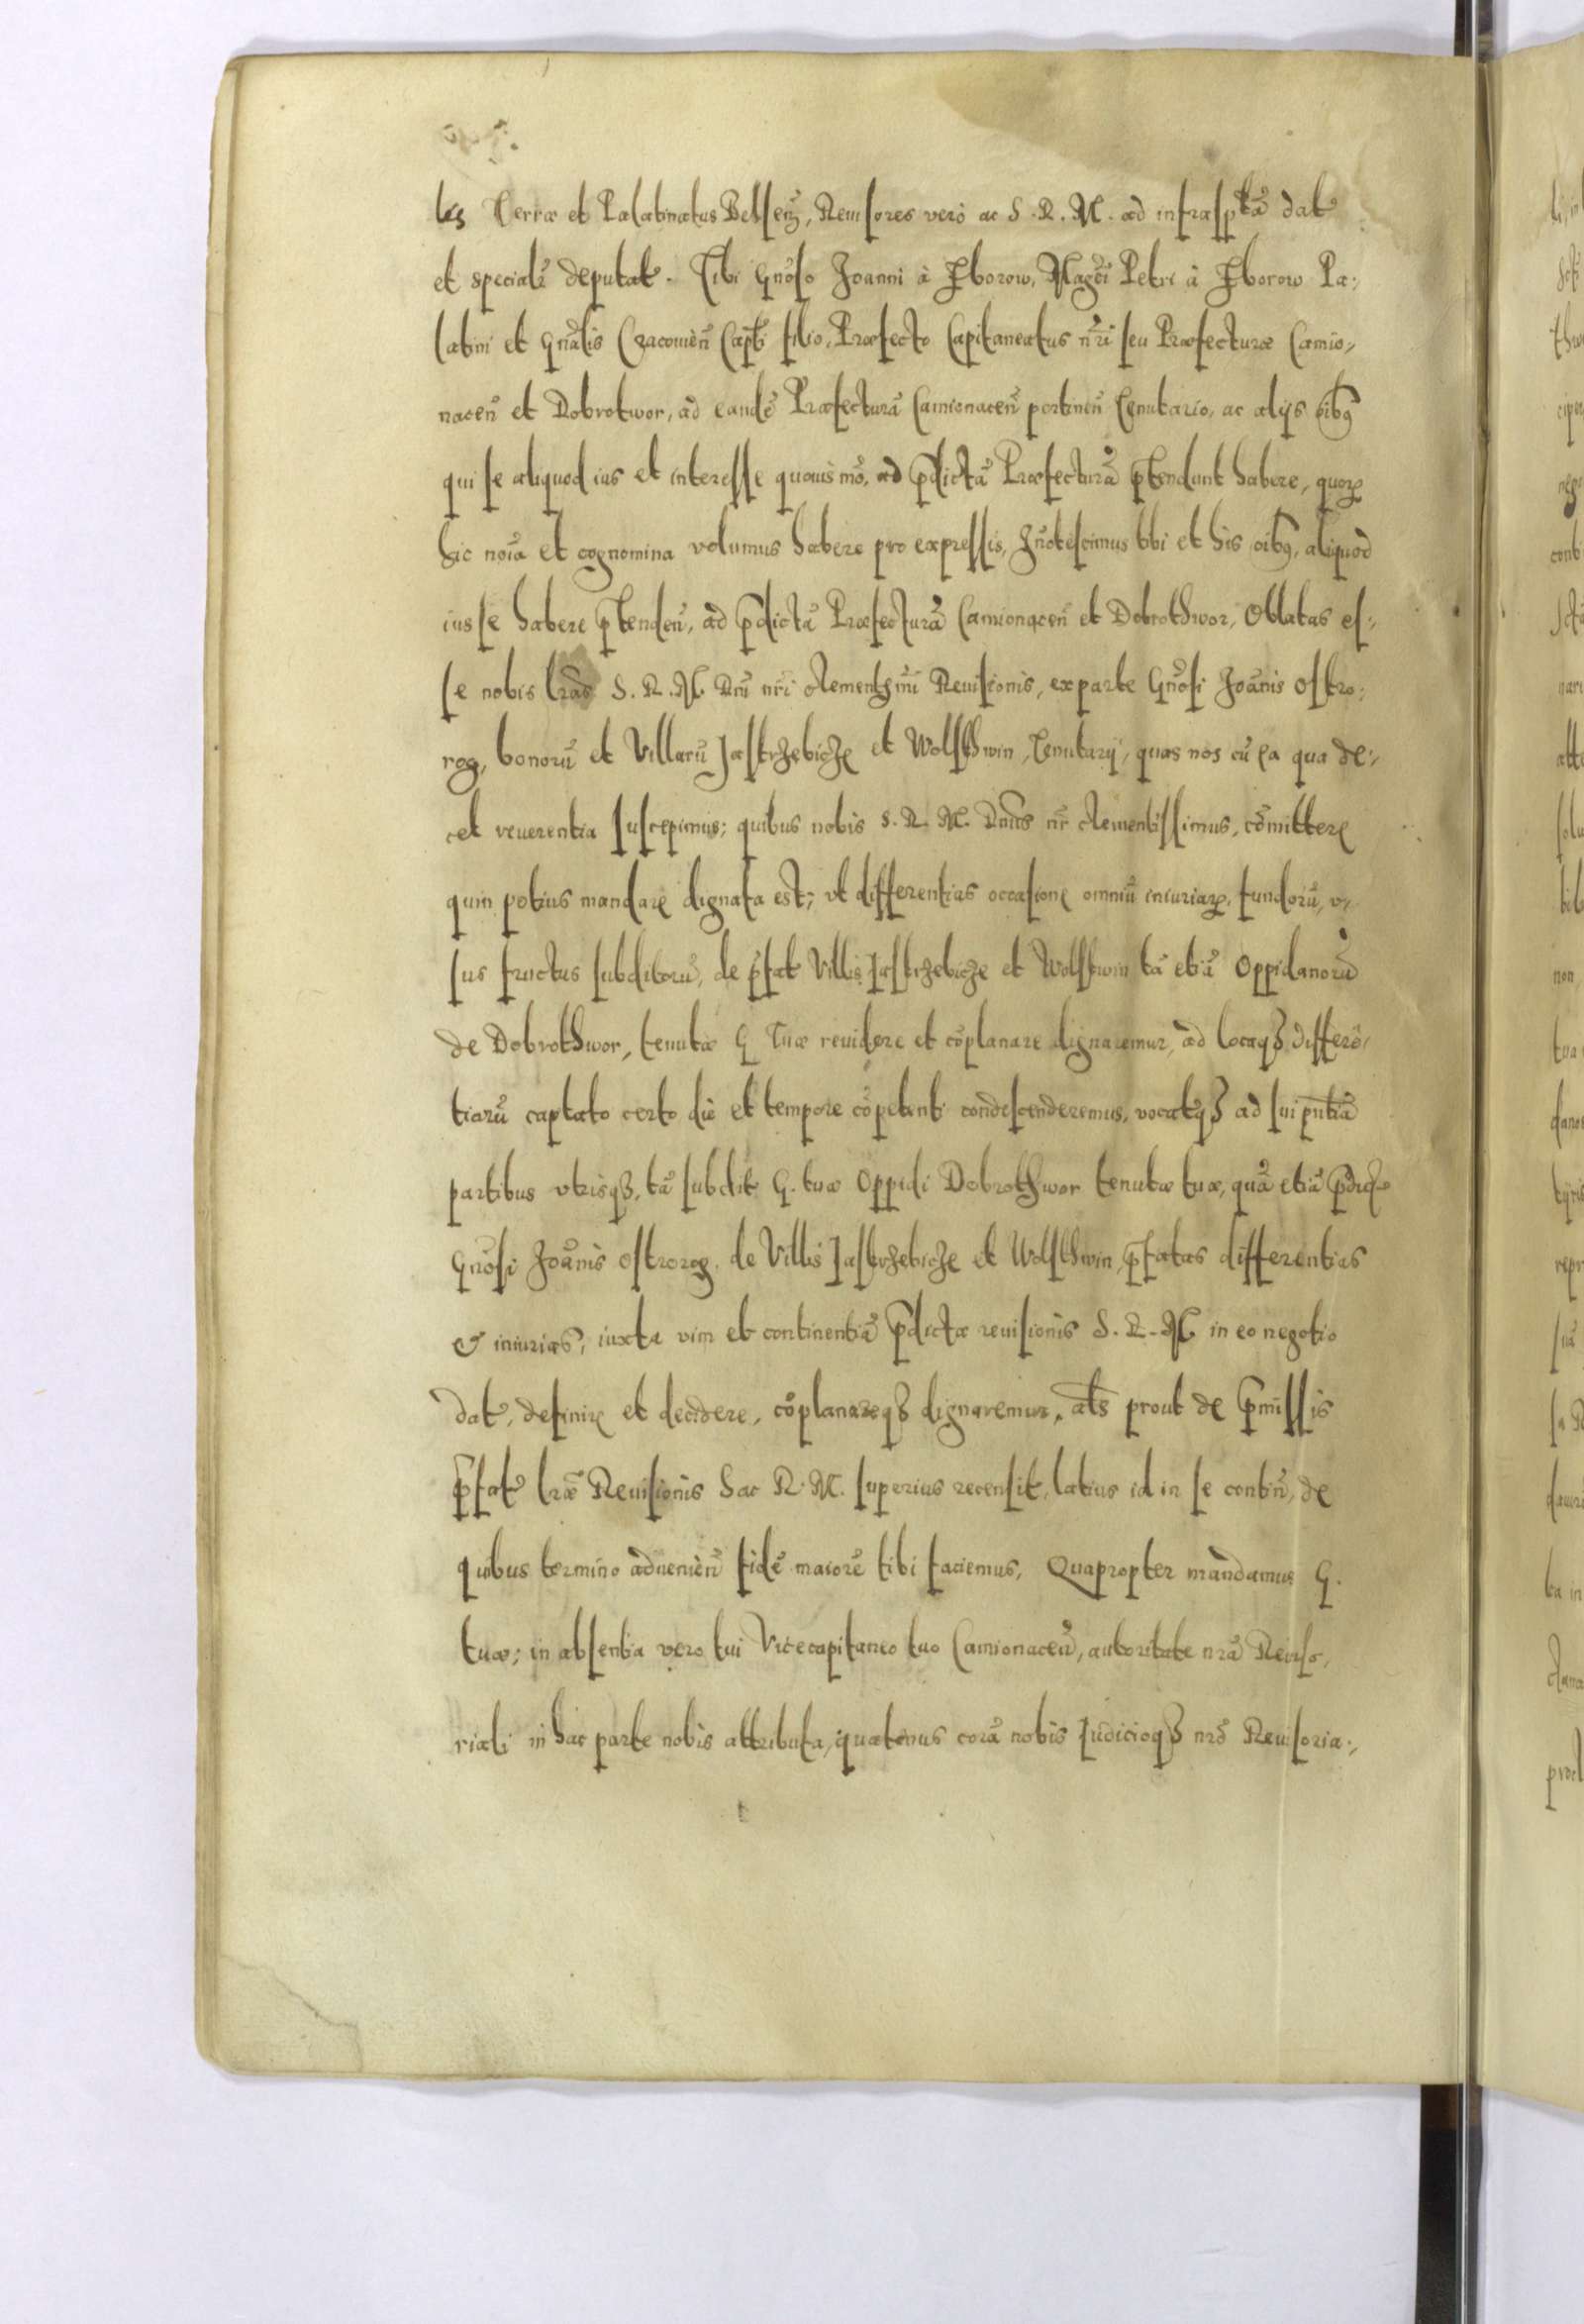 les Terræ et Palatinatus Belsen̄, Reuisores verò ac S. R. M. ad infrasptã dat
et specialr̃ deputat. Tibi Gnõso Joanni à Zborow, Magci Petri à Zborow Pa:,
latini et Gnãlis Cracouien̄ Capti filio, Præfecto Capitaneatus nr̃i seu Præfecturæ Camio,
nacen̄ et Dobrotwor, ad eandẽ Præfecturã Camionacen̄ pertinen̄ Tenutario, ac alijs oibq
qui se aliquod ius et interesse quouis mõ, ad p̄dictã Præfecturã p̄tendunt habere, quorꝝ
hic noĩa et cognomina volumus habere pro expressis, Jñotescimus tibi et his oibq, aliquod
ius se habere p̄tenden̄, ad p̄dictã Præfecturã Camionacen̄ et Dobrothwor, Oblatas es:,
se nobis lr̃as S. R. M. Dnĩ nr̃i clementissimi Reuisionis, ex parte Gnõsi Joãnis Ostro:
rog, bonorũ et Villarũ Jastrzebicze et Wolsthwin, Tenutarij, quas nos cũ ea qua de:,
cet reuerentia suscepimus; quibus nobis S. R. M. Dnũs nr̃ clementissimus, cõmittere
quin potius mandare dignata est; vt differentias occasione omniũ iniuriarꝝ, fundorũ, v,
sus fructus subditorũ, de p̄fat Villis Jastrzebicze et Wolstwin tã etiã Oppidanorũ
de Dobrothwor, tenutæ G Tuæ reuidere et cõplanare dignaremur, ad locaqȝ differẽ,
tiarũ captato certo die et tempore cõpetenti condescenderemus, vocatqȝ ad sui pn̄tiã
partibus vtrisqȝ, tã subdit G. tuæ Oppidi Dobrothwor tenutæ tuæ, quã etiã
Gnõsi Joãnis Ostrorog, de Villis Jastrzebicze et Wolsthwin, p̄fatas differentias
& iniurias, iuxta vim et continentiã p̄dictæ reuisionis S. R. M in eo negotio
dat, definire et decidere, cõplanareqȝ dignaremur, al̄s prout de p̄missis
p̄fat lr̃æ Reuisionis Sac R. M. superius recensit, latius id in se contin̄, de
quibus termino aduenien̄ fidẽ maiorẽ tibi faciemus, Quapropter mandamus G.
tuæ; in absentia vero tui Vicecapitaneo tuo Camionacen̄, autoritate nr̃a Reuiso,
riali in hac parte nobis attributa, quatenus corã nobis Judicioqȝ nr̃o Reuisoria:,